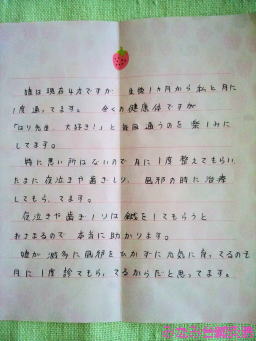 娘は現在4才ですが、生後1ヵ月から私と月に
1度通ってます。 全くの健康体ですが
「はり先生、大好き!」と毎回通うのを楽しみに
してます。
特に悪い所はないので月に1度整えてもらい、
たまに夜泣きや歯ぎしり、風邪の時に治療
してもらってます。
夜泣きや歯ぎしりは鍼をしてもらうと
おさまるので本当に助かります。
娘が滅多に風邪をひかずに元気に育ってるのも
月に1度診てもらってるからだと思ってます。